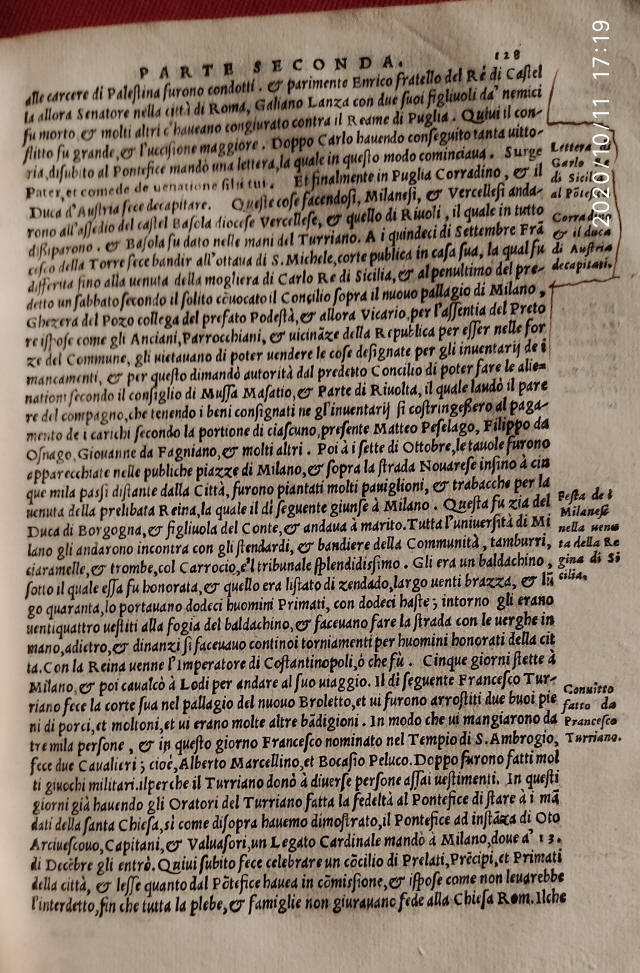 2020/10/11 17:19
128
PARTE SECONDA.
alle carcere di Palestina furono condotti. & parimente Enrico fratello del Ré di Castel
la allora Senatore nella città di Roma, Galiano Lanza con due suoi figliuoli da' nemici
fu morto & molti altri c'haueano congiurato contra il Reame di Puglia. Quiui il con-
flitto fu grande, & l'uccisione maggiore. Doppo Carlo hauendo conseguito tanta uitto-
ria, disubito al Pontefice mandò una lettera, la quale in questo modo cominciaua. Surge
Pater, et comede de uenatione filii tui. Et finalmente in Puglia Corradino, & il
Duca d'Austria fece decapitare. Queste cose facendosi, Milanesi, & Vercellesi anda-
rono all'assedio del castel Basola diocese Vercellese, & quello di Riuoli, il quale in tutto
dissiparono. & Basola fu dato nelle mani del Turriano. A i quindeci di Settembre Frã
cesco della Torre fece bandir all'ottaua di S. Michele, corte publica in casa sua, la qual fu
differita fino alla uenuta della mogliera di Carlo Re di Sicilia, & al penultimo del pre-
detto un sabbato secondo il solito cõuocato il Concilio sopra il nuouo pallagio di Milano,
Ghezera del Pozo collega del prefato Podestà, & allora Vicario, per l'assentia del Preto
re ispose come gli Anciani, Parrocchiani, & uicināze della Republica per esser nelle for
ze del Commune, gli uietauano di poter uendere le cose designate per gli inuentarij de i
mancamenti, & per questo dimandò autorità dal predetto Concilio di poter fare le alie-
nationi secondo il consiglio di Mussa Masatio, & Parte di Riuolta, il quale laudò il pare
re del compagno, che tenendo i beni consignati ne gl'inuentarij si costringessero al paga-
mento de i carichi secondo la portione di ciascuno, presente Matteo Peselago, Filippo da
Osnago, Giouanne da Fagniano, & molti altri. Poi à i sette di Ottobre, le tauole furono
apparecchiate nelle publiche piazze di Milano, & sopra la strada Nouarese insino à cin
que mila passi distante dalla Città, furono piantati molti pauiglioni, & trabacche per la
uenuta della prelibata Reina, la quale il dì seguente giunse à Milano. Questa fu zia del
Duca di Borgogna, & figliuola del Conte, & andaua à marito. Tutta l'uniuersità di Mi
lano gli andarono incontra con gli stendardi, & bandiere della Communità, tamburri,
ciaramelle, & trombe, col Carrocio, e'l tribunale splendidissimo. Gli era un baldachino,
sotto il quale essa fu honorata, & quello era listato di zendado, largo uenti brazza, & lũ
go quaranta, lo portauano dodeci huomini Primati, con dodeci haste; intorno gli erano
uentiquattro uestiti alla fogia del baldachino, & faceuano fare la strada con le uerghe in
mano, adietro, & dinanzi si faceuano continoi torniamenti per huomini honorati della cit
ta. Con la Reina uenne l'Imperatore di Costantinopoli, ò che fù. Cinque giorni stette à
Milano, & poi caualcò à Lodi per andare al suo uiaggio. Il dì seguente Francesco Tur-
riano fece la corte sua nel pallagio del nuouo Broletto, et ui furono arrostiti due buoi pie
ni di porci, et moltoni, et ui erano molte altre bādigioni. In modo che ui mangiarono da
tre mila persone, & in questo giorno Francesco nominato nel Tempio di S. Ambrogio,
fece due Caualieri; cioè, Alberto Marcellino, et Bocasio Peluco. Doppo furono fatti mol
ti giuochi militari. ilperche il Turriano donò à diuerse persone assai uestimenti. In questi
giorni già hauendo gli Oratori del Turriano fatta la fedeltà al Pontefice di stare à i mā
dati della santa Chiesa, sì come disopra hauemo dimostrato, il Pontefice ad instāza di Oto
Arciuescouo, Capitani, & Valuasori, un Legato Cardinale mandò à Milano, doue a' 13.
di Decēbre gli entrò. Quiui subito fece celebrare un cōcilio di Prelati, Prēcipi, et Primati
della città, & lesse quanto dal Pōtefice hauea in cōmissione, & ispose come non leuarebbe
l'interdetto, fin che tutta la plebe, & famiglie non giurauano fede alla Chiesa Rom. Ilche
Lettera
Carlo
di Sicilia
al Põtef.
Corrad
& il duca
di Austria
decapitati.
Festa de i
Milanesi
nella uenu
ta della Re
gina di Si
cilia.
Conuitto
fatto da
Francesco
Turriano.